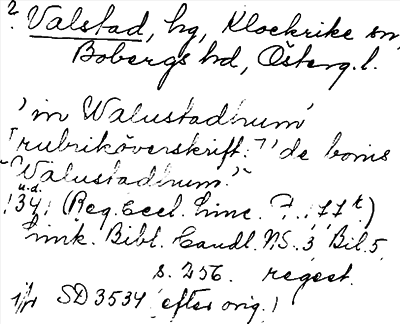 ? Valstad, hg, Klockrike sn,
Bobergs hd, Österg. l.
'in Walustadhum'
[rubriköverskrift:] 'de bonis
Walustadhum.'
u.d.
134 (Reg. Eccl. Linc. F. 77 r.)
Link. Bibl. Handl. NS. 3 Bil. 5,
s. 256. regest.
SD 3534 (efter orig.)